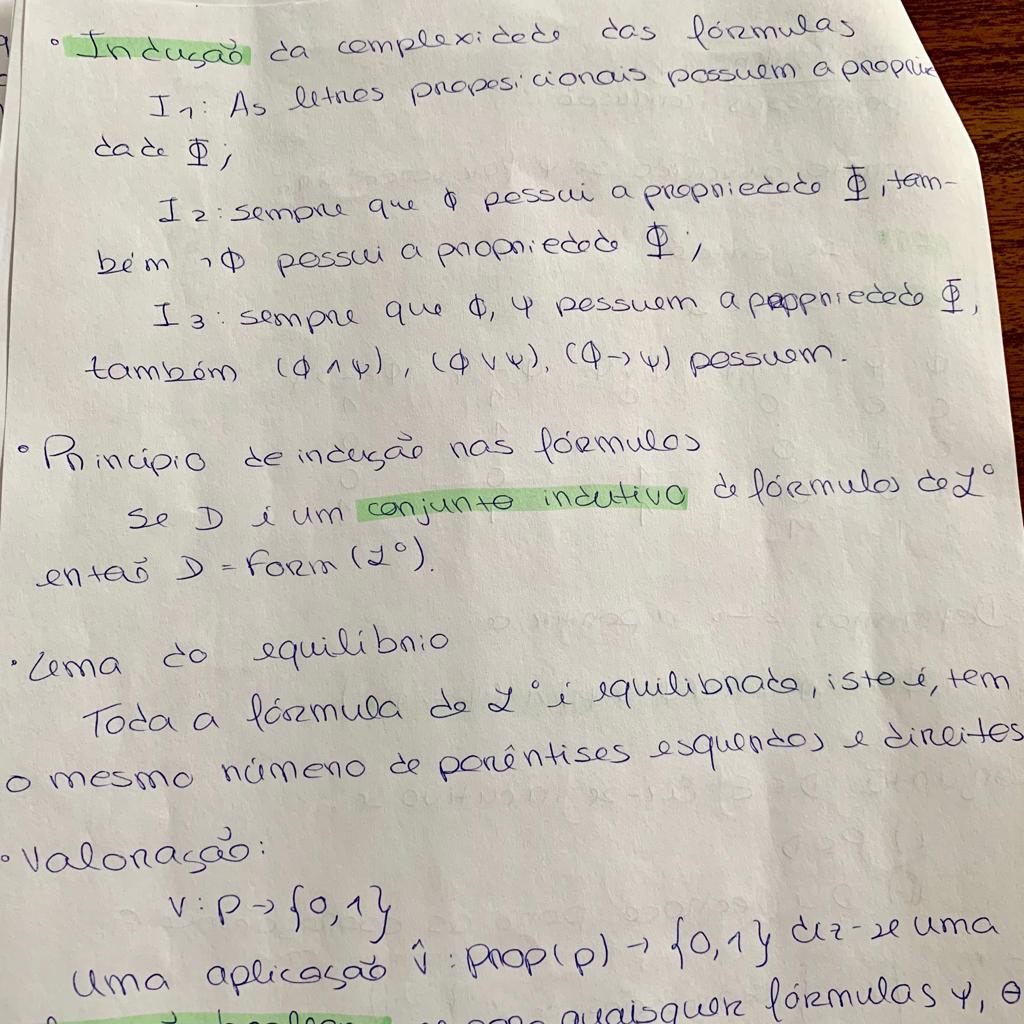 • Indução da complexidade das fórmulas
I1: As letras proposicionais possuem a proprie
dade Φ;
I2: sempre que ϕ possui a propriedade Φ, tam-
bém ¬ϕ possui a propriedade Φ;
I3: sempre que ϕ, ψ possuem a propriedade Φ,
também (ϕ ∧ ψ), (ϕ ∨ ψ), (ϕ → ψ) possuem.
• Princípio de indução nas fórmulas
Se D é um conjunto indutivo de fórmulas de L°
então D = Form (L°).
• Lema do equilíbrio
Toda a fórmula de L° é equilibrada, isto é, tem
o mesmo número de parêntises esquerdos e direitos
• Valoração:
v: P → {0,1}
Uma aplicação v̂ : Prop(P) → {0,1} diz-se uma
quaisquer fórmulas ψ, θ